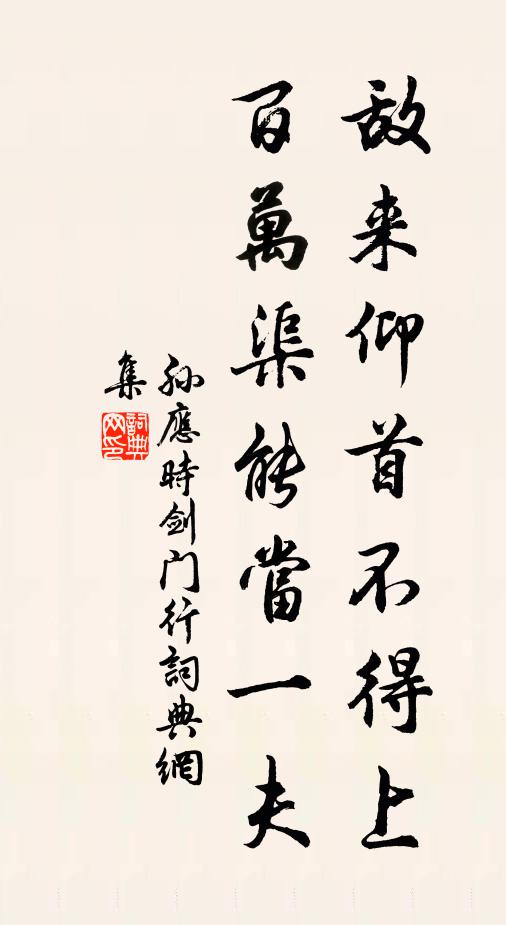 敌来仰首不得上
百萬渠能當一夫
孙應時剑门行詞典網
集
詞典网印